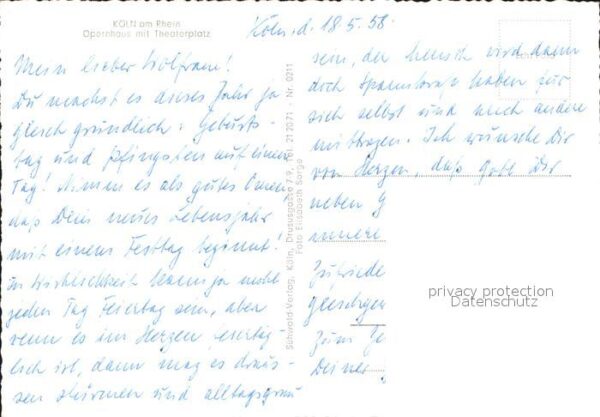 KÖLN am Rhein
Opernhaus mit Theaterplatz
Köln, d. 18.5.58.
Mein lieber Wolfram!
Du machst es dieses Jahr ja
gleich gründlich: Geburts-
tag und Pfingsten auf einen
Tag! Nimm es als gutes Omen,
daß Dein neues Lebensjahr
mit einem Festtag beginnt!
In Wirklichkeit kann ja nicht
jeden Tag Feiertag sein, aber
wenn es im Herzen feiertäg-
lich ist, dann mag es draus-
sen stürmen und alltagsgrau
sein, der Mensch wird dann
doch Spannkraft haben für
sich selbst und auch andere
mittragen. Ich wünsche Dir
von Herzen, daß Gott Dir
neben G
innere
Zufriede
Zum Ge
Deiner
Schwald-Verlag, Köln, Drususgasse 7-9, Tel. 21 70 71 - Nr. 0211
Foto Elisabeth Sorge
privacy protection
Datenschutz